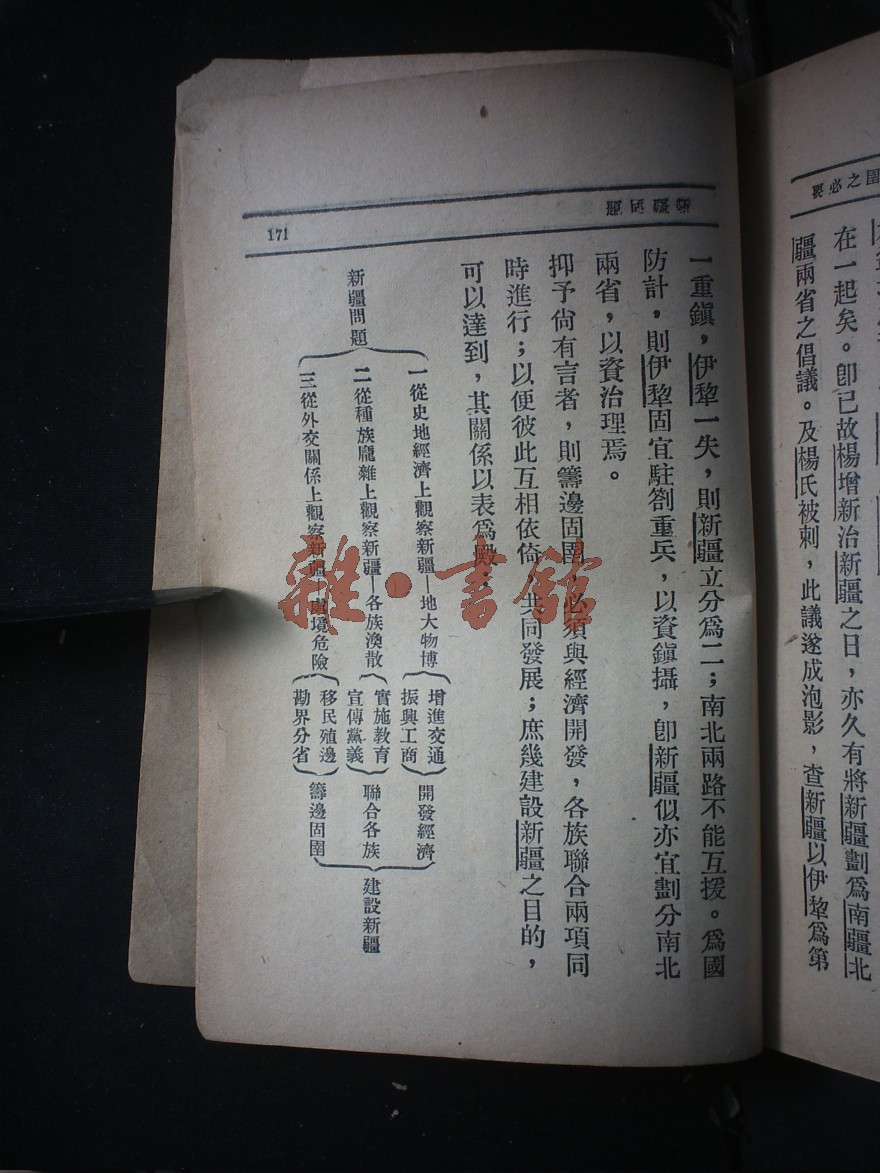 圉之必要
在一起矣。卽已故楊增新治新疆之日，亦久有將新疆劃爲南疆北
疆兩省之倡議。及楊氏被刺，此議遂成泡影，查新疆以伊犂爲第
新疆問題
171
一重鎭，伊犂一失，則新疆立分爲二；南北兩路不能互援。爲國
防計，則伊犂固宜駐劄重兵，以資鎭攝，卽新疆似亦宜劃分南北
兩省，以資治理焉。
抑予尙有言者，則籌邊固圉，必須與經濟開發，各族聯合兩項同
時進行；以便彼此互相依倚，共同發展；庶幾建設新疆之目的，
可以達到，其關係以表爲殿：
新疆問題
一從史地經濟上觀察新疆—地大物博
增進交通
振興工商
開發經濟
二從種族龐雜上觀察新疆—各族渙散
實施教育
宣傳黨義
聯合各族
三從外交關係上觀察新疆—處境危險
移民殖邊
勘界分省
籌邊固圉
建設新疆
雜·書館